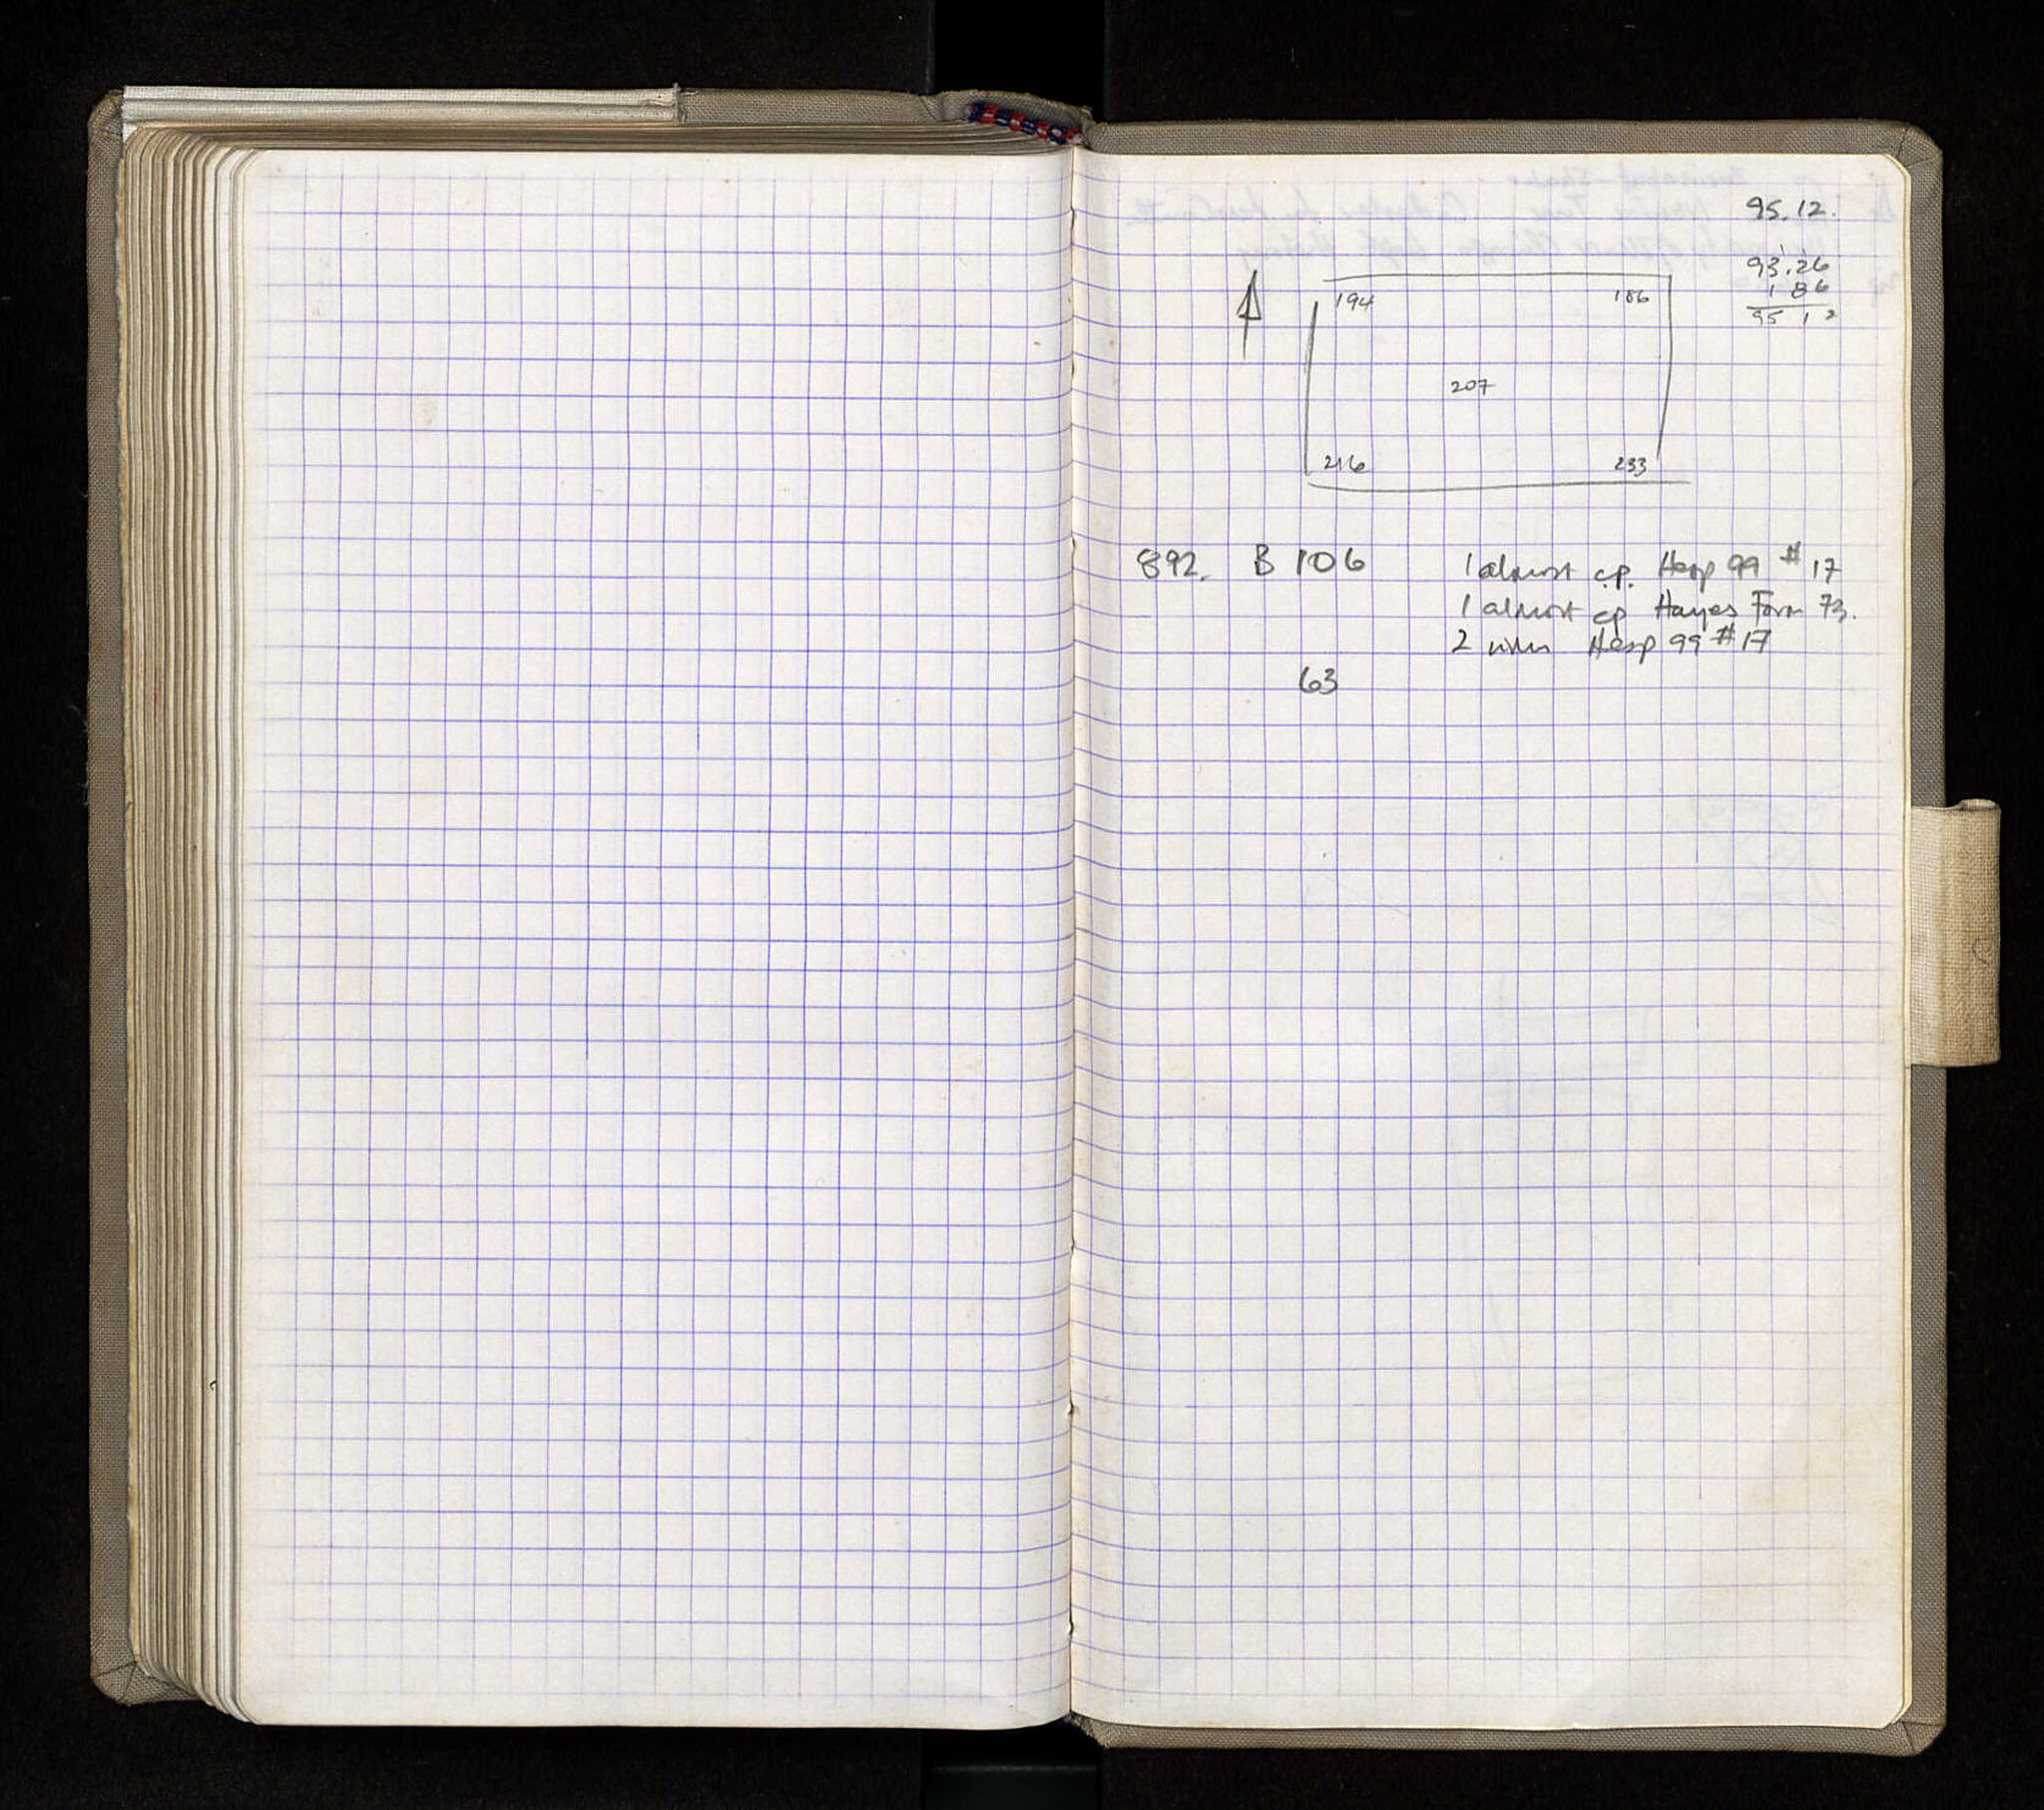 95.12.
93.26
194 186
1 86
95 1 2
207
216 233
892. B 106 1 almost c.p. Hesp 99 # 17
1 almost cp Hayes Form 73.
2 Hesp 99 # 17
63